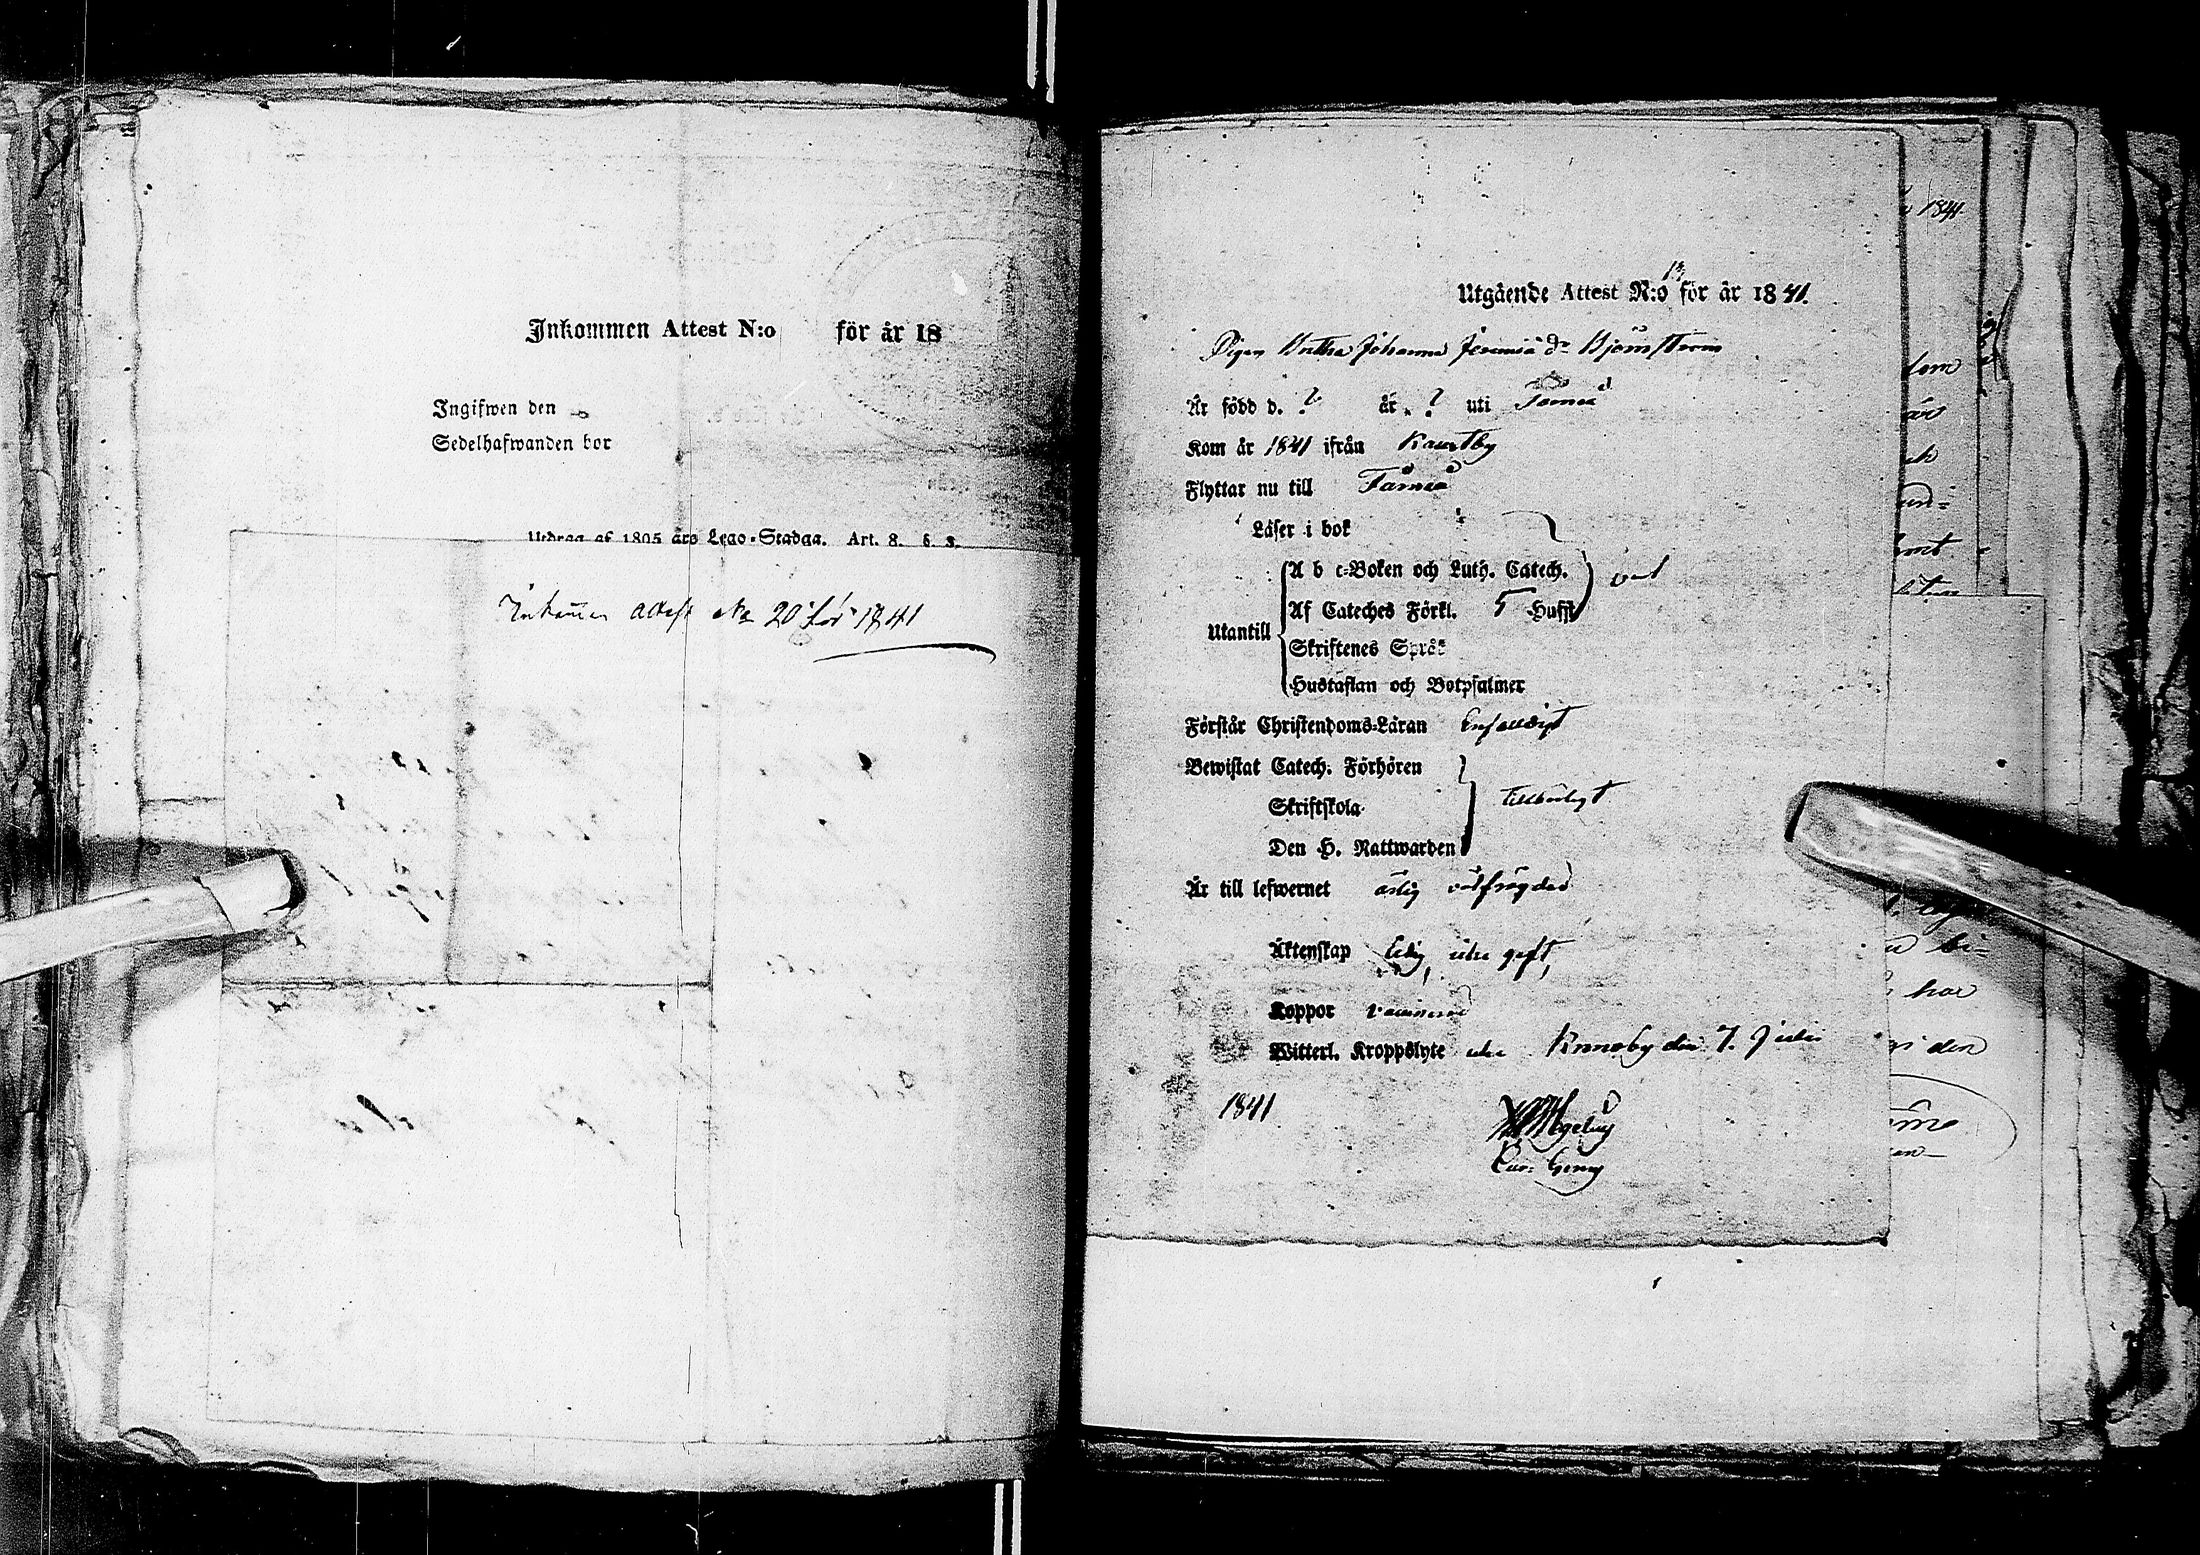 Inkommen Attest N:o för år 18
Ingifwen den
Sedelhafwanden bor
Utdrag af 1805 års Lego-Stadga. Art. 8. §. 3.
Inkom̅en Attest No 20 för 1841
Utgående Attest N:o 13 för år 1841.
Pigan Johanna Jeremiæ dr Björnström
Är född d. ? år ? uti Torneå
Kom år 1841 ifrån
Flyttar nu till Torneå
Läser i bok
A b c-Boken och Luth. Catech. väl
Af Cateches Förkl. 5 Hufst
Utantill
Skriftenes Språk
Hustaflan och Botpsalmer
Förstår Christendoms-Läran Enfaldigt
Bewistat Catech. Förhören
Skriftskola tillbörligt
Den H. Nattwarden
Är till lefwernet ärlig välfrägdad
Äktenskap ledig, icke gift,
Koppor vaccinerad
Witterl. Kroppslyte icke den 7. Julii
1841
1841
har
den